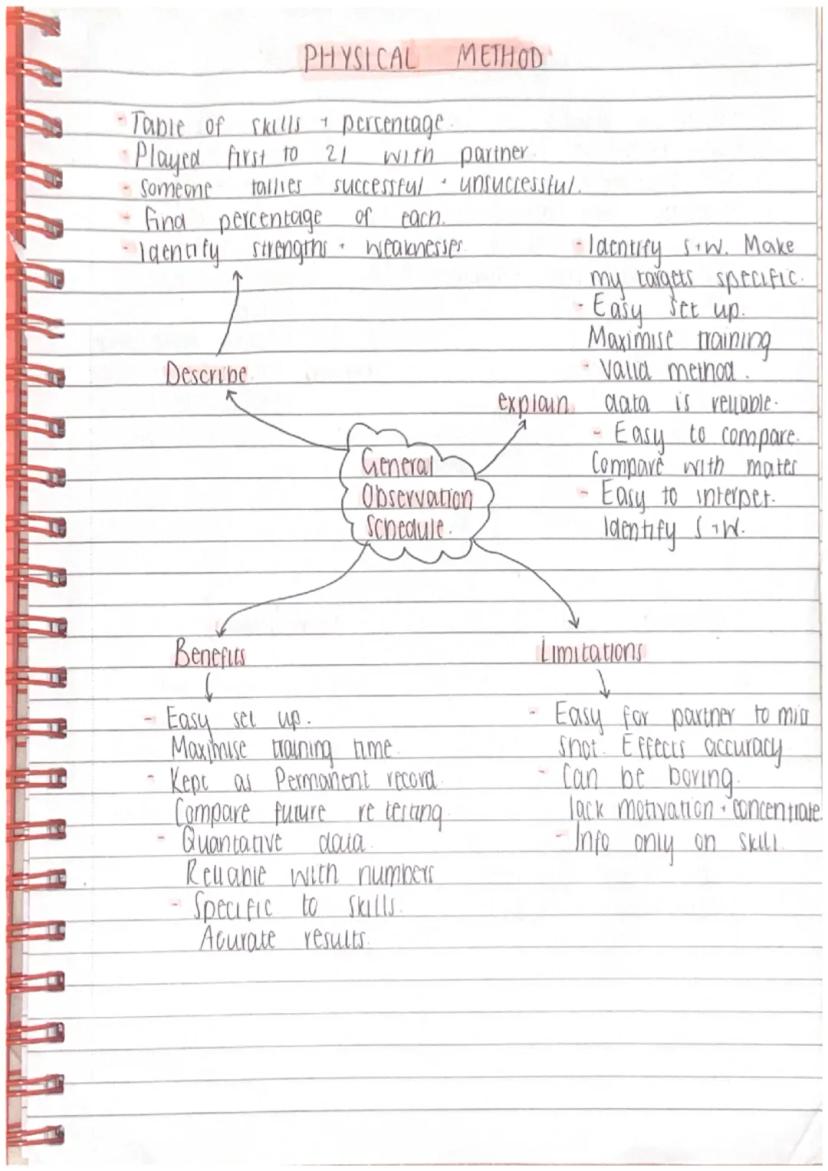 PHYSICAL METHOD
- Table of skills + percentage.
- Played first to 21 with partner.
- Someone tallies successful + unsuccessful.
- find percentage of each.
- Identify strengths + weaknesses
Describe.
- Identify S+W. Make
my targets specific.
- Easy set up.
Maximise training
- Valid method.
data is reliable.
- Easy to compare.
Compare with mates
- Easy to interpet.
Identify S+W.
explain
General
Observation
Schedule.
Benefits
- Easy set up.
Maximise training time
- Kept as Permanent record.
Compare future re testing
- Quantative data.
Reliable with numbers
- Specific to skills.
Acurate results.
Limitations
- Easy for partner to miss
shot. Effects accuracy
- Can be boring.
lack motivation + concentrate.
- Info only on skill